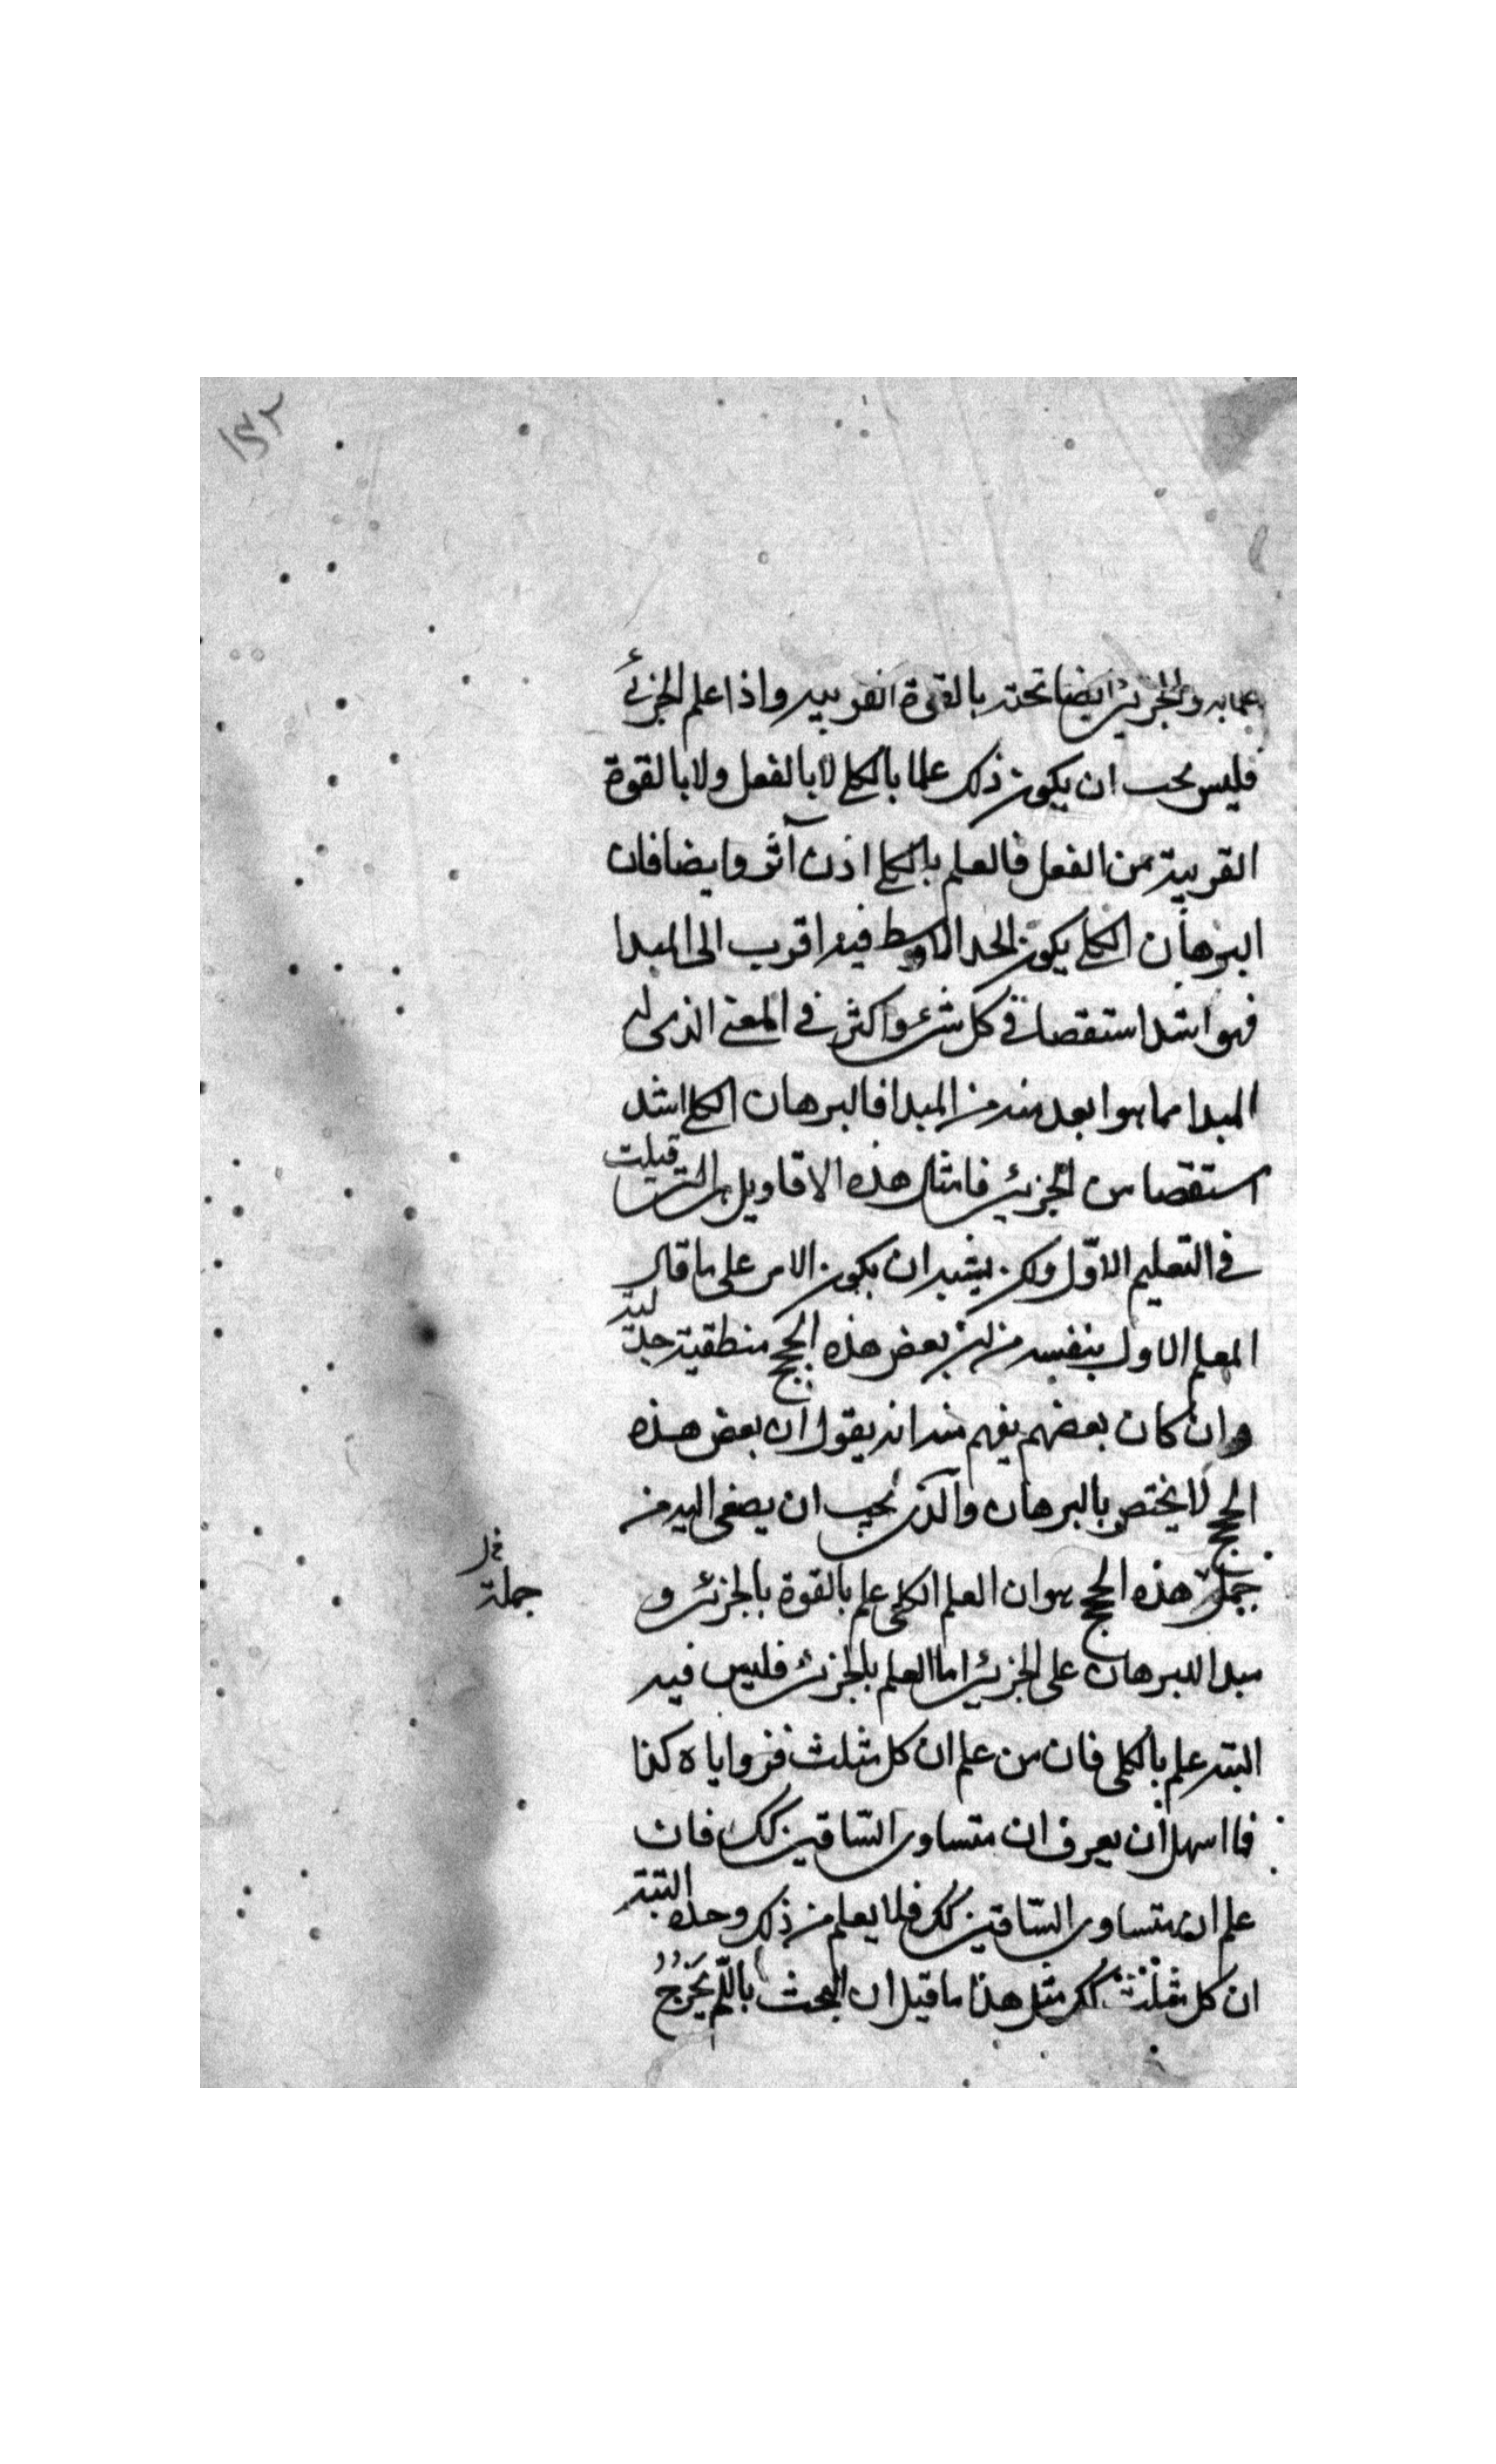 ١٤٢
علما به والجزئى ايضا تحته بالقوة القريبه واذا علم الجزئى
فليس يجب ان يكون ذلك علما بالكلى لا بالفعل ولا بالقوة
القريبة من الفعل فالعلم بالكلى اذن آثر وايضا فان
البرهان الكلى يكون الحد الاوسط فيه اقرب الى المبدا
فهو اشد استقصا فى كل شىء واكثر فى المعنى الذى له
المبدا مما هو ابعد منه من المبدا فالبرهان الكلى اشد
استقصا من الجزئى فامثال هذه الاقاويل هى التى قيلت
فى التعليم الاوّل ولكن يشبه ان يكون الامر على ما قال
المعلم الاول بنفسه من ان بعض هذه الحجج منطقية جدلية
وان كان بعضهم يفهم منه انه يقول ان بعض هذه
الحجج لا يختص بالبرهان والذى يجب ان يصغى اليه من
جملة هذه الحجج هو ان العلم الكلى علم بالقوة بالجزئى و
جملة
مبدا للبرهان على الجزئى اما العلم بالجزئى فليس فيه
البته علم بالكلى فان من علم ان كل مثلث فزواياه كذا
فما اسهل ان يعرف ان متساوى السّاقين كك فان
علم ان متساوى السّاقين كك فلا يعلم من ذلك وحده البتة
ان كل مثلث كك مثل هذا ما قيل ان البحث باللّم يخرج